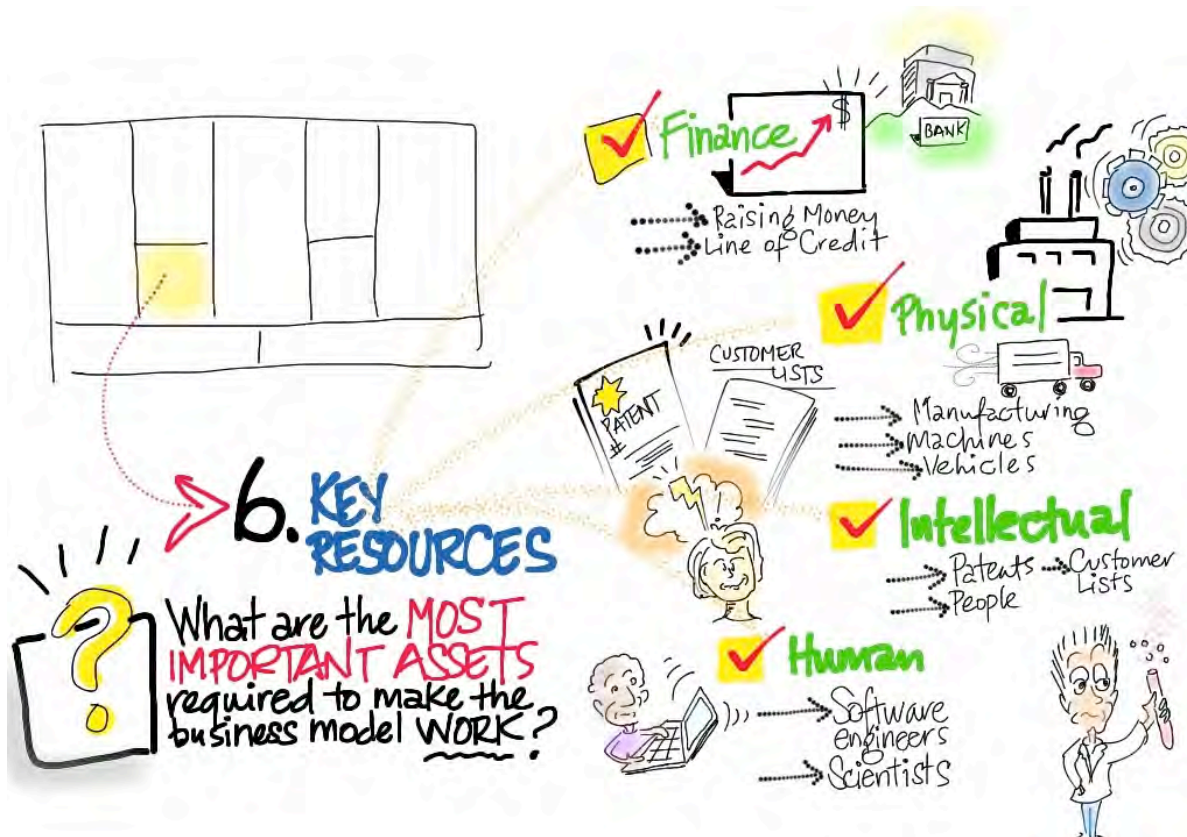 6. KEY
RESOURCES
What are the MOST
IMPORTANT ASSETS
required to make the
business model WORK?
Finance
$
BANK
Raising Money
Line of Credit
Physical
Manufacturing
Machines
Vehicles
PATENT
#
CUSTOMER
LISTS
Intellectual
Patents Customer
Lists
People
Human
Software
engineers
Scientists